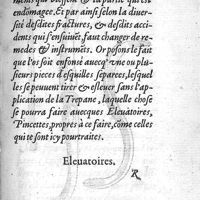 endomagee. Et par ainsi selon la diuer-
sité desdites fractures, & desdits acci-
dents qui s'ensuiuẽt, faut changer de re-
medes & instrumẽts. Or posons le fait
que l'os soit enfonsé auecq' vne ou plu-
sieurs pieces d'esquilles separees, lesquel
les se peuuent tirer & esleuer sans l'ap-
plication de la Trepane, laquelle chose
se pourra faire auecques Eleuatoires,
Pincettes, propres à ce faire, cõme celles
qui te sont icy pourtraites.
Eleuatoires.
R